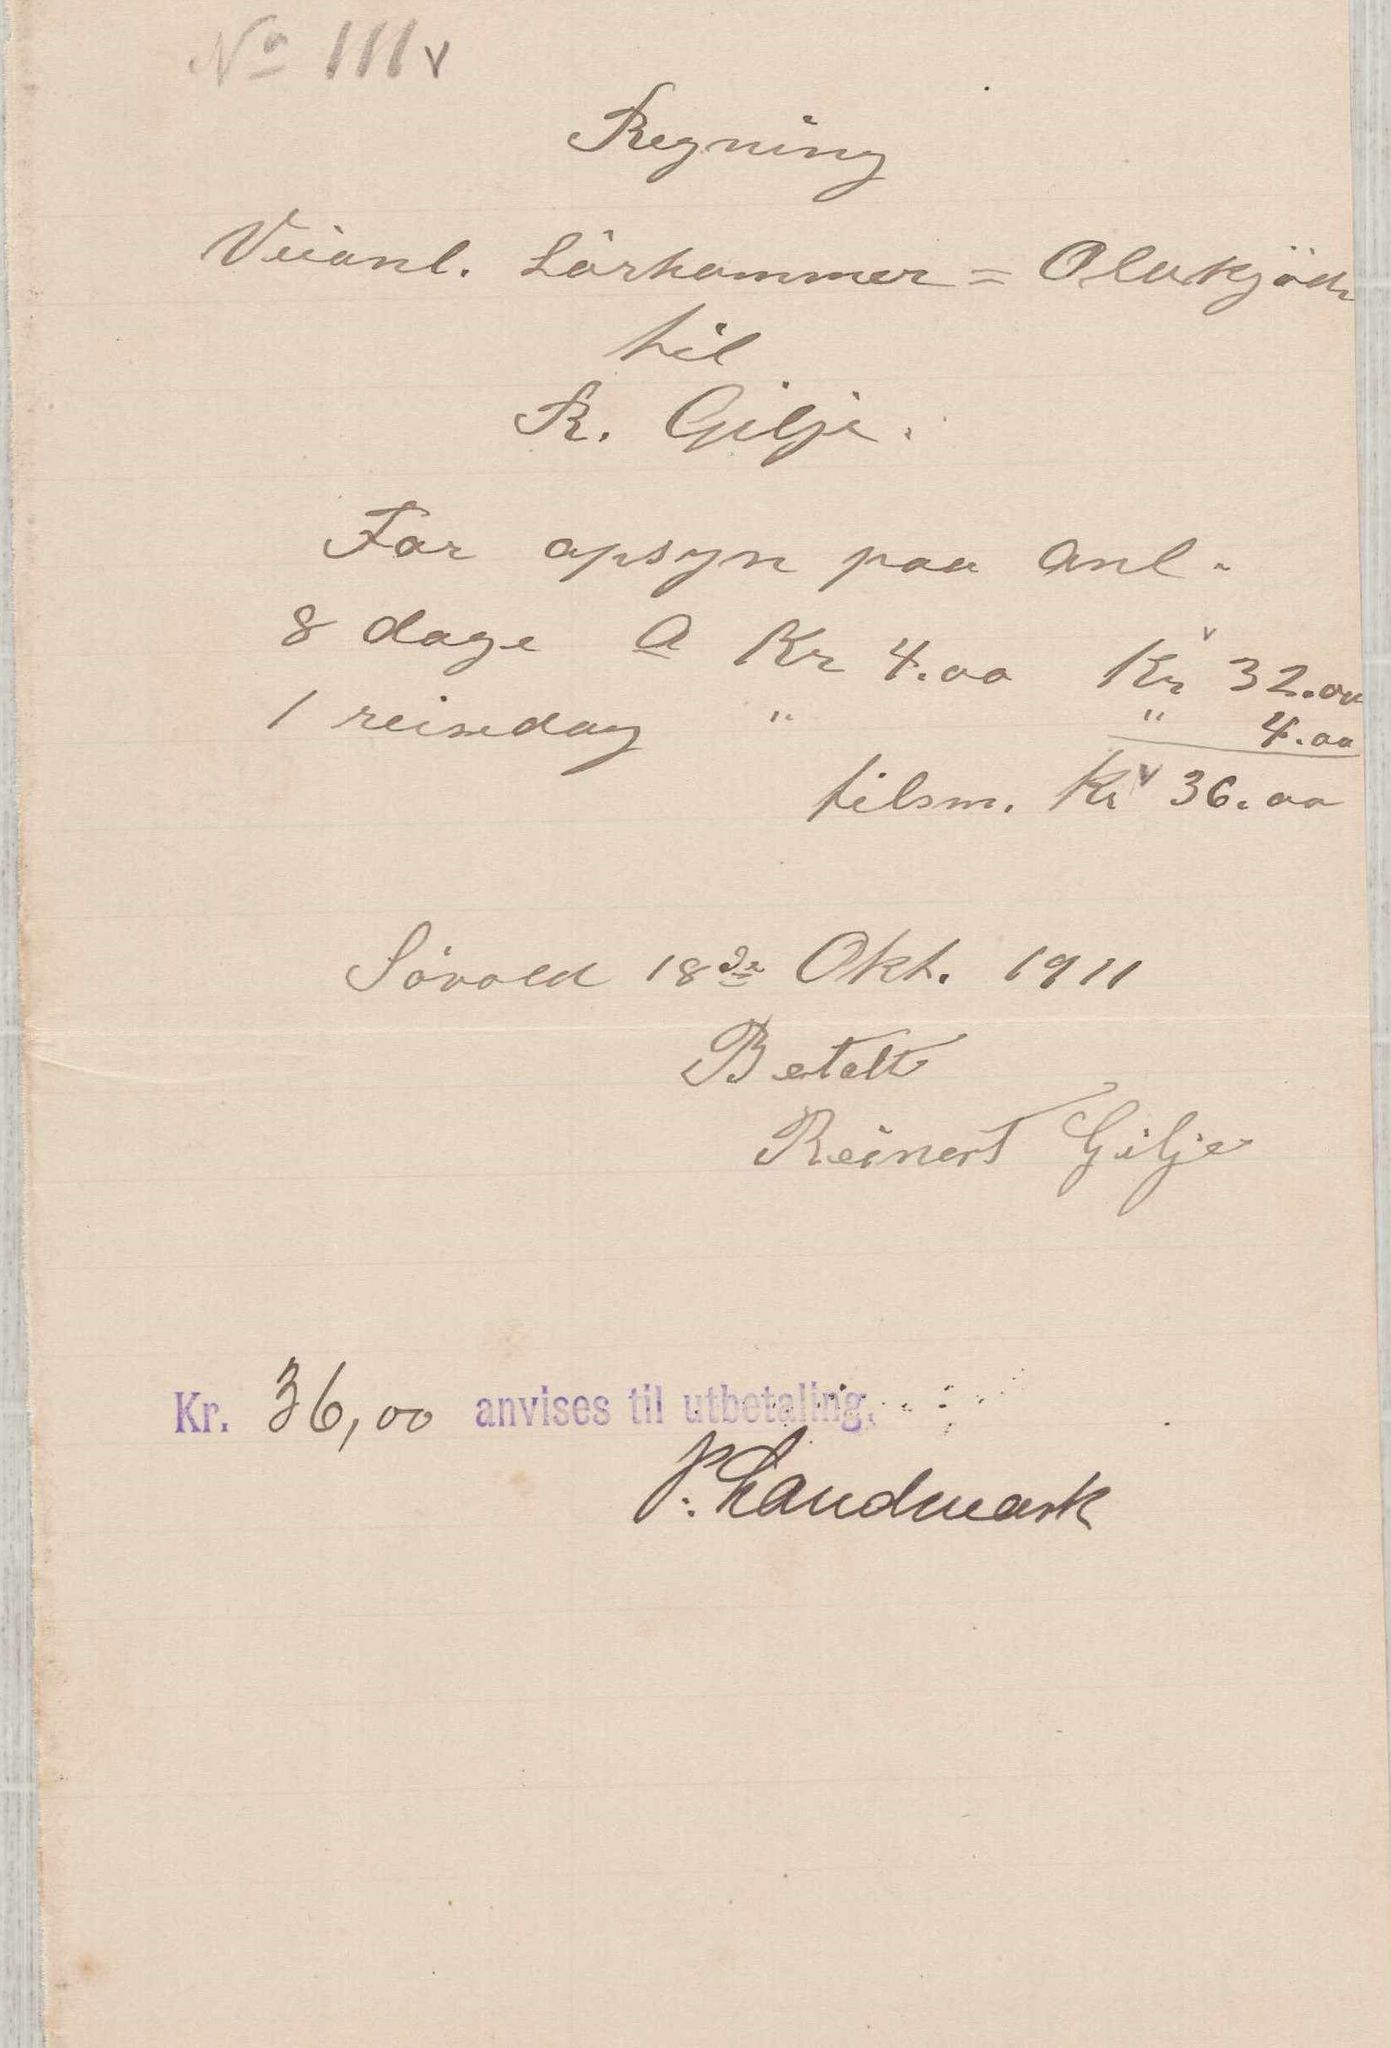 No 111 v
Regning
Veianl. Lörhammer = Olukjöl
til
R. Gilje.
For opsyn paa Anl.
8 dage a Kr 4.00 Kr 32.00
1 reisedag " " 4.00
tilsm. Kr 36.00
Sövold 18de Okt. 1911
Betalt
Reinert Gilje
Kr. 36,00 anvises til utbetaling.
P. Landmark